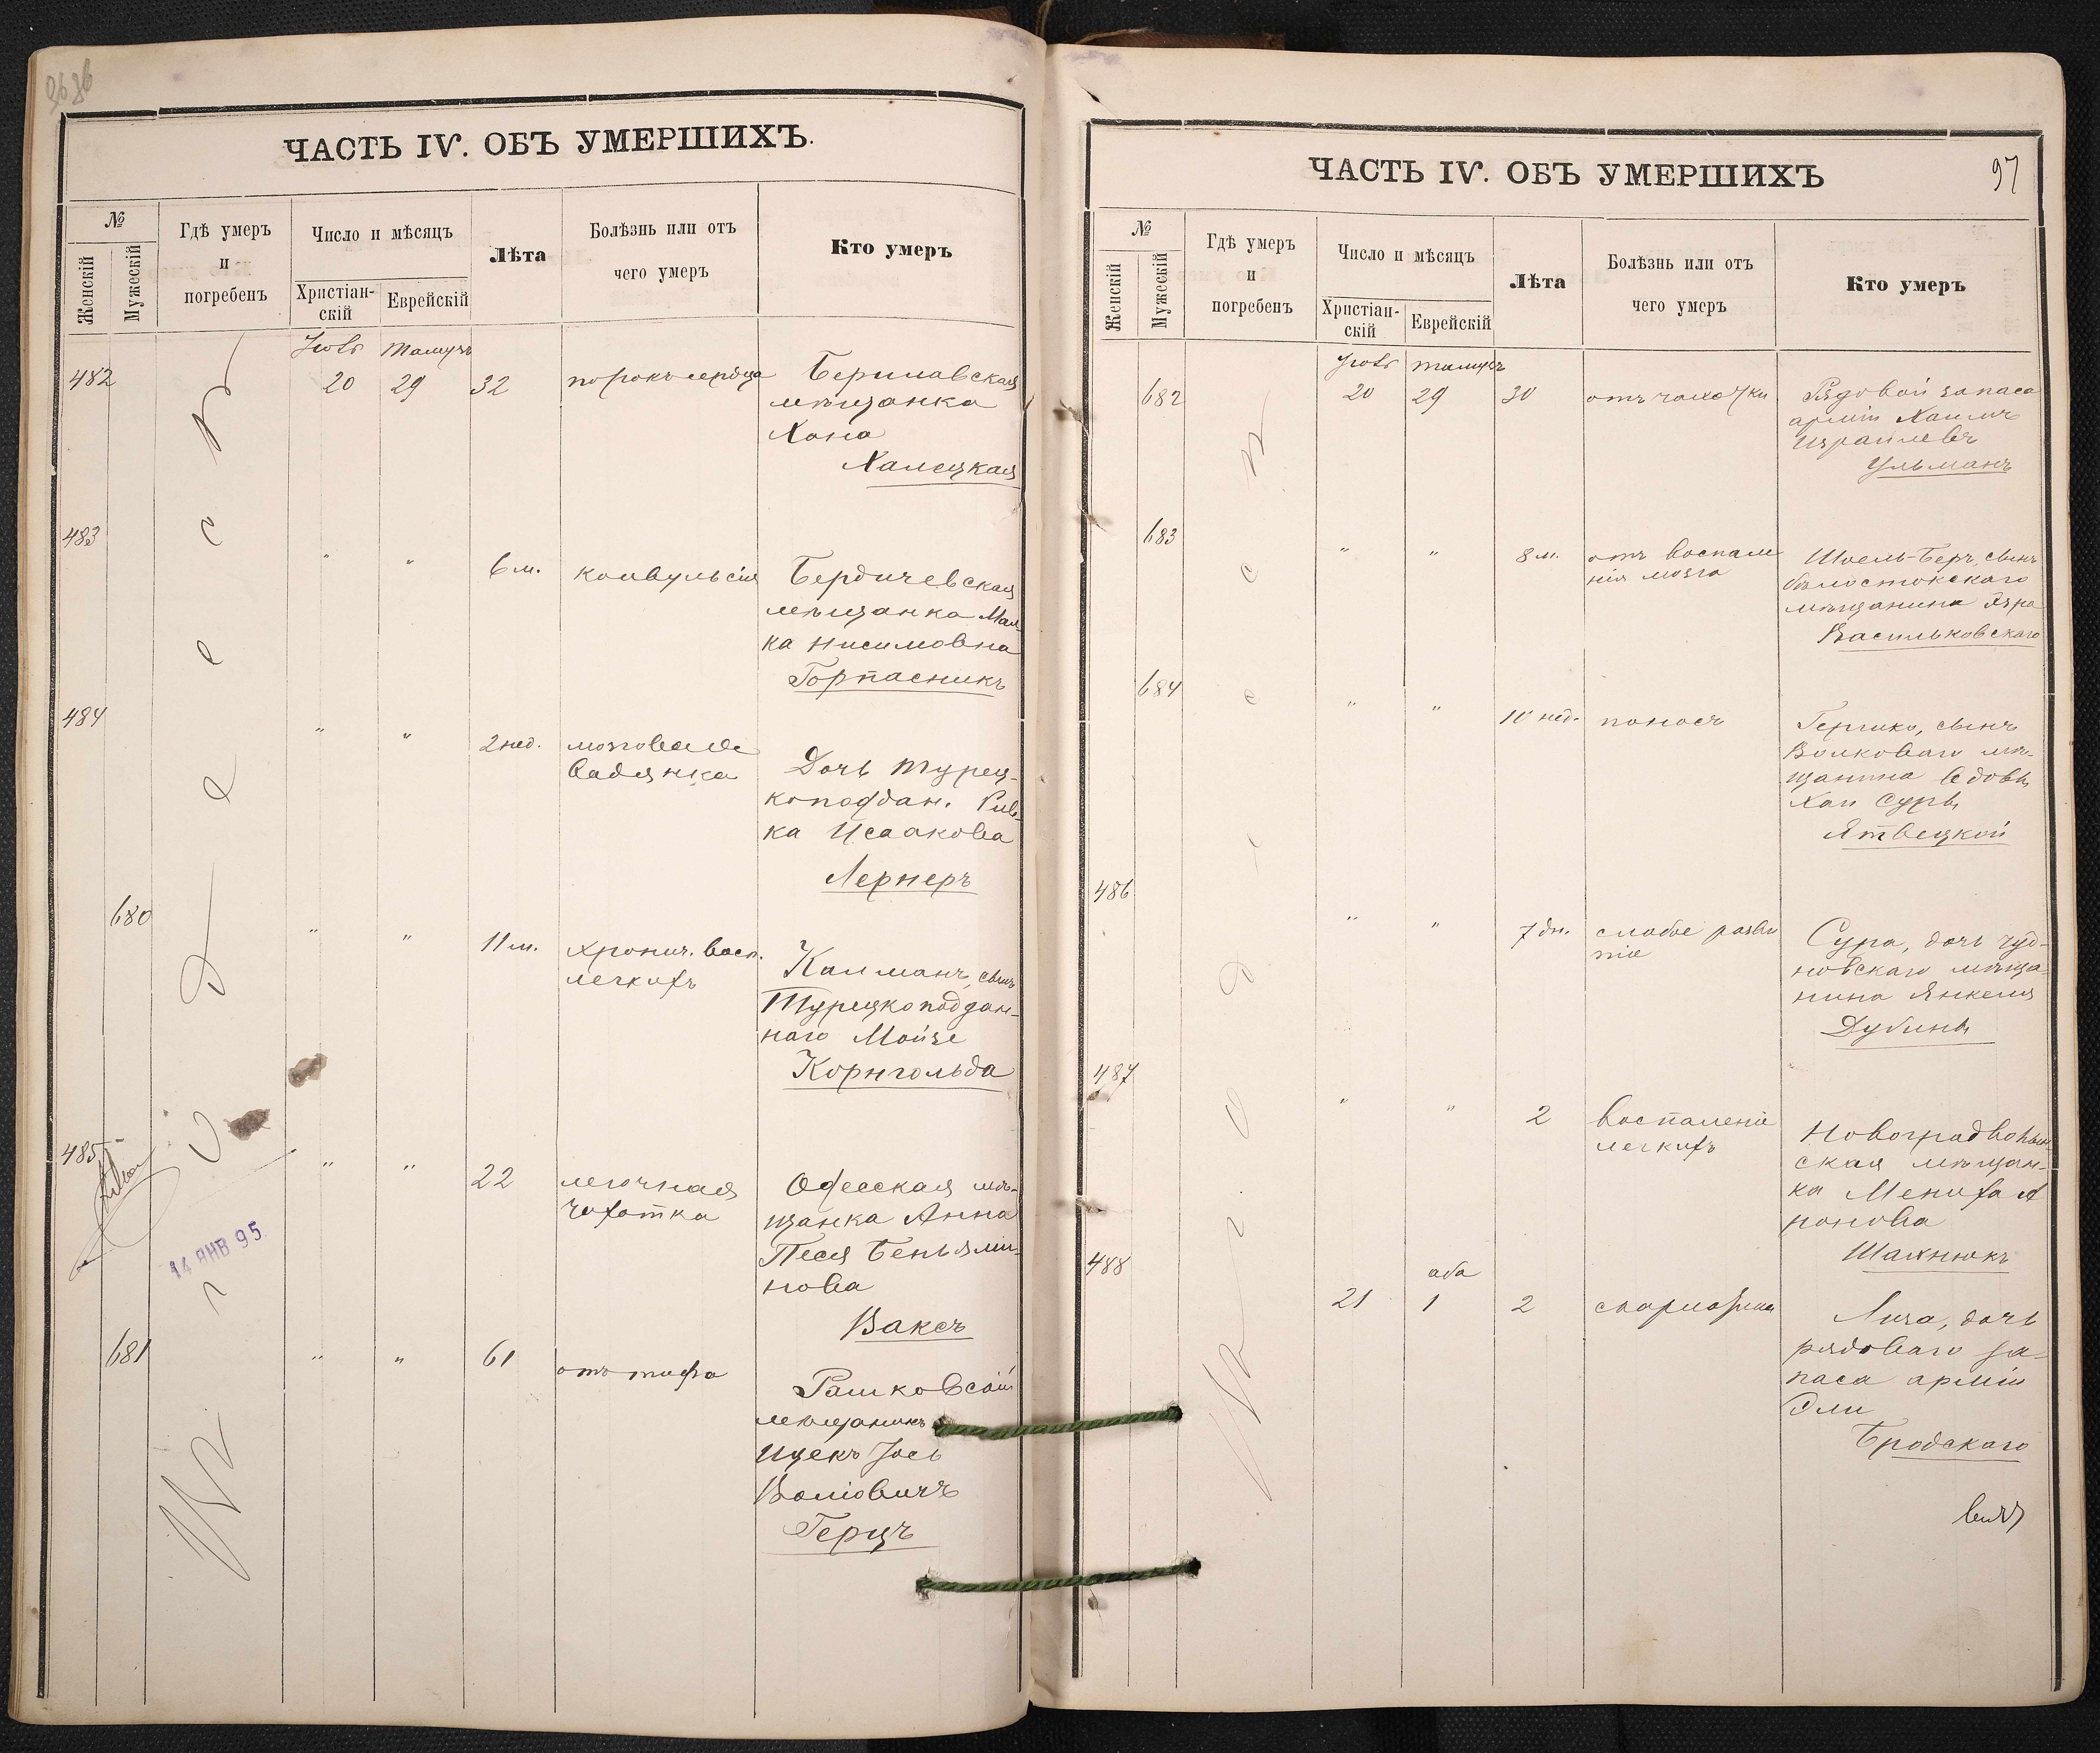 ЧАСТЬ IV. ОБЪ УМЕРШИХЪ.
№
Женскій
Мужескій
Гдѣ умеръ
и
погребенъ
Число и мѣсяцъ
Христіан-
скій
Еврейскій
Лѣта
Болѣзнь или отъ
чего умеръ
Кто умеръ
Въ г. Одессѣ
Іюль Тамузъ
482 20 29 32 порокъ сердца
Бериславская
мѣщанка
Хана
Халецкая
483 " " 6 м. конвульсія
Бердичевская
мѣщанка Мал-
ка Нисимовна
Горпасникъ
484 " " 2 нед. мозговая
водянка
Дочь турец-
коподдан. Рив-
ка Исаакова
Лернеръ
680 " " 11 м. хронич. восп.
легкихъ
Калманъ, сынъ
Турецкоподдан-
наго Мойзе
Корнгольда
485 " " 22 легочная
чахотка
Одесская мѣ-
щанка Анна
Песя Беньями-
нова
Ваксъ
14 ЯНВ 95
681 " " 61 отъ тифа
Рашковскій
мѣщанинъ
Ицекъ Іось
Волковичъ
Герцъ
ЧАСТЬ IV. ОБЪ УМЕРШИХЪ
97
№
Женскій
Мужескій
Гдѣ умеръ
и
погребенъ
Число и мѣсяцъ
Христіан-
скій
Еврейскій
Лѣта
Болѣзнь или отъ
чего умеръ
Кто умеръ
Въ г. Одессѣ
Іюль Тамузъ
682 20 29 30 отъ чахотки
Рядовой запаса
арміи Хаимъ
Израилевъ
Ульманъ
683 " " 8 м. отъ воспале
нія мозга
Шоель-Беръ, сынъ
бѣлостокскаго
мѣщанина
Васильковскаго
684 " " 10 нед. поносъ
Гершко, сынъ
Волковаго мѣ-
щанина вдовы
Хаи Суры
Ятвецкой
486 " " 7 дн. слабое разви
тіе
Сура, дочь чуд-
новскаго мѣща-
нина Янкеля
Дубины
487 " " 2 воспаленіе
легкихъ
Новоградволын-
ская мѣщан-
ка Мениха А
ронова
Шахнюкъ
аба
488 21 1 2 скарлатина
Лиза, дочь
рядоваго за-
паса арміи
Эли
Бродскаго